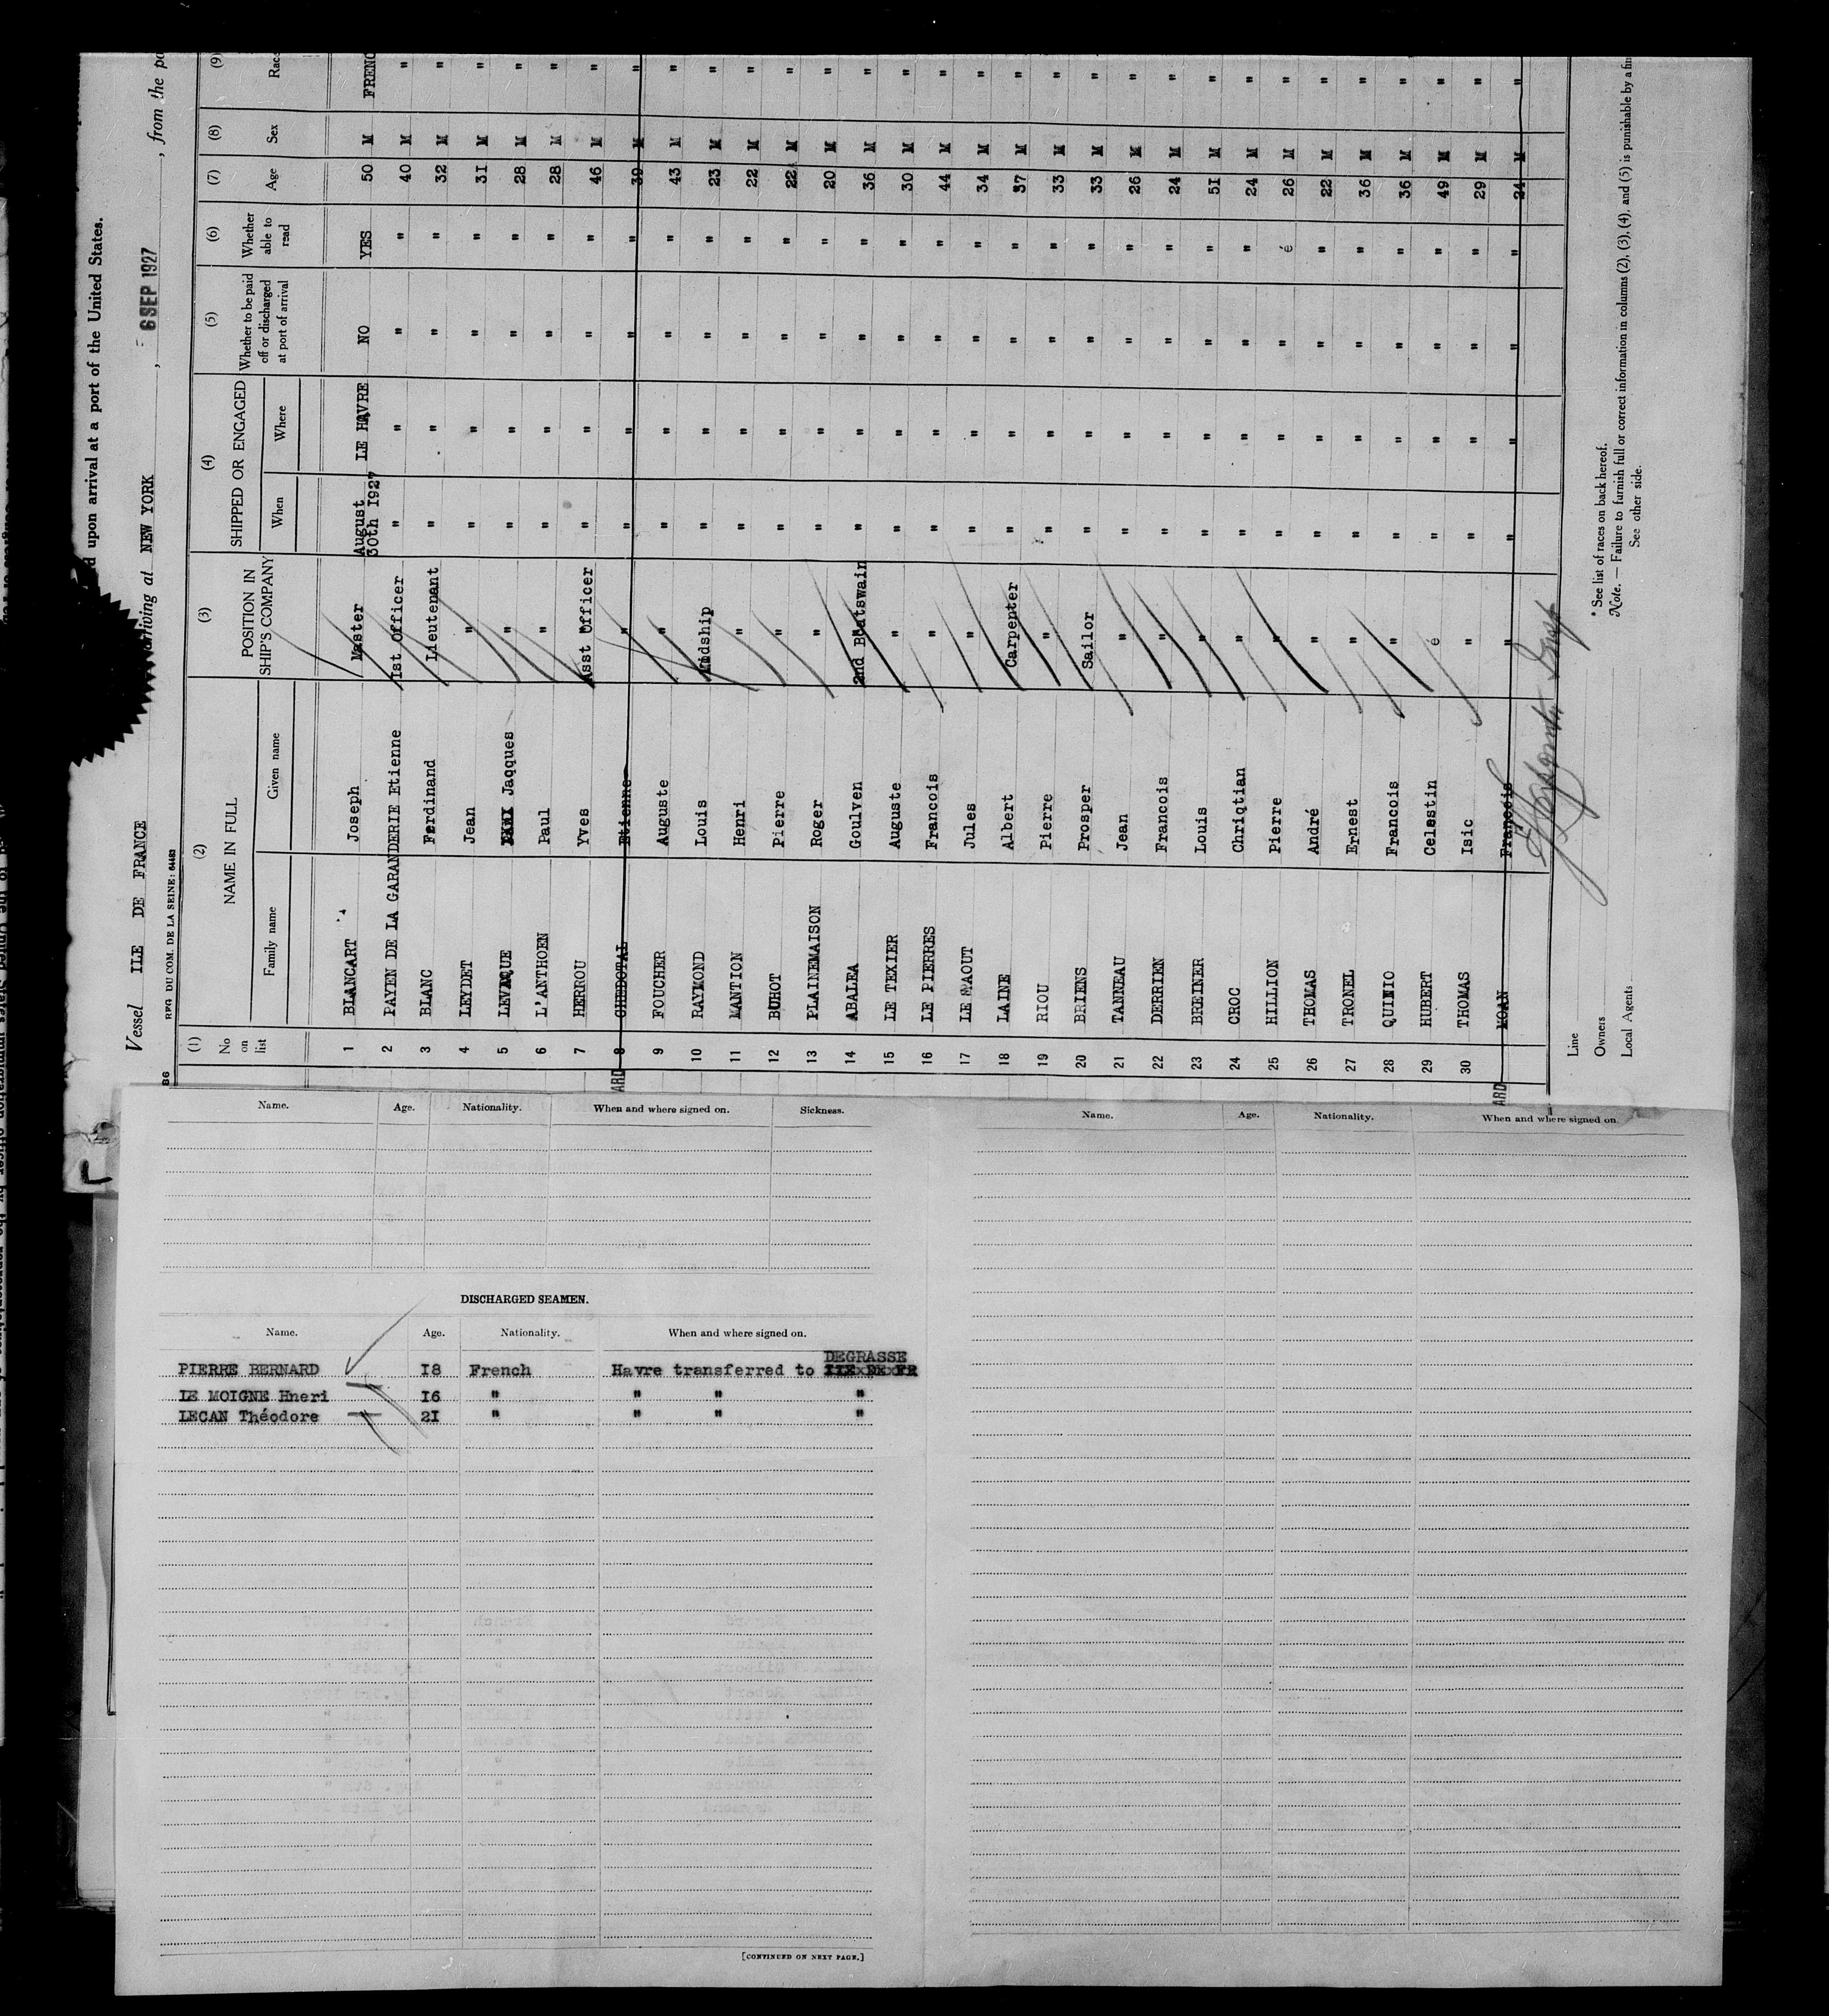 d upon arrival at a port of the United States.
Vessel ILE DE FRANCE arriving at NEW YORK , 6 SEP 1927 , from the po
B6 REG. DU COM. DE LA SEINE: 64483
(1) (2) (3) (4) (5) (6) (7) (8) (9)
No on list NAME IN FULL POSITION IN SHIP'S COMPANY SHIPPED OR ENGAGED Whether to be paid off or discharged at port of arrival Whether able to read Age Sex Rac
Family name Given name When Where
1 BLANCART Joseph Master August 30th 1927 LE HAVRE NO YES 50 M FRENC
2 PAYEN DE LA GARANDERIE Etienne 1st Officer " " " " 40 M "
3 BLANC Ferdinand Lieutenant " " " " 32 M "
4 LEYDET Jean " " " " " 31 M "
5 LEVAQUE Jacques " " " " " 28 M "
6 L'ANTHOEN Paul " " " " " 28 M "
7 HERROU Yves Asst Officer " " " " 46 M "
8 CHEDOTAL Etienne " " " " " 39 M "
9 FOUCHER Auguste " " " " " 43 M "
10 RAYMOND Louis Midship " " " " 23 M "
11 MANTION Henri " " " " " 22 M "
12 BUHOT Pierre " " " " " 22 M "
13 PLAINEMAISON Roger " " " " " 20 M "
14 ABALEA Goulven 2nd Boatswain " " " " 36 M "
15 LE TEXIER Auguste " " " " " 30 M "
16 LE PIERRES Francois " " " " " 44 M "
17 LE MAOUT Jules " " " " " 34 M "
18 LAINE Albert Carpenter " " " " 37 M "
19 RIOU Pierre " " " " " 33 M "
20 BRIENS Prosper Sailor " " " " 33 M "
21 TANNEAU Jean " " " " " 26 M "
22 DERRIEN Francois " " " " " 24 M "
23 BREINER Louis " " " " " 51 M "
24 CROC Chriqtian " " " " " 24 M "
25 HILLION Pierre " " " " é 26 M "
26 THOMAS André " " " " " 22 M "
27 TRONEL Ernest " " " " " 36 M "
28 QUINIO Francois " " " " " 36 M "
29 HUBERT Celestin é " " " " 49 M "
30 THOMAS Isic " " " " " 29 M "
MOAN François " " " " " 24 M "
Line
Owners
Local Agents
* See list of races on back hereof.
Note. — Failure to furnish full or correct information in columns (2), (3), (4), and (5) is punishable by a fin
See other side.
Name. Age. Nationality. When and where signed on. Sickness.
Name. Age. Nationality. When and where signed on.
DISCHARGED SEAMEN.
Name. Age. Nationality. When and where signed on.
DEGRASSE
PIERRE BERNARD 18 French Havre transferred to
LE MOIGNE Hneri 16 " " " "
LECAN Théodore 21 " " " "
[CONTINUED ON NEXT PAGE.]